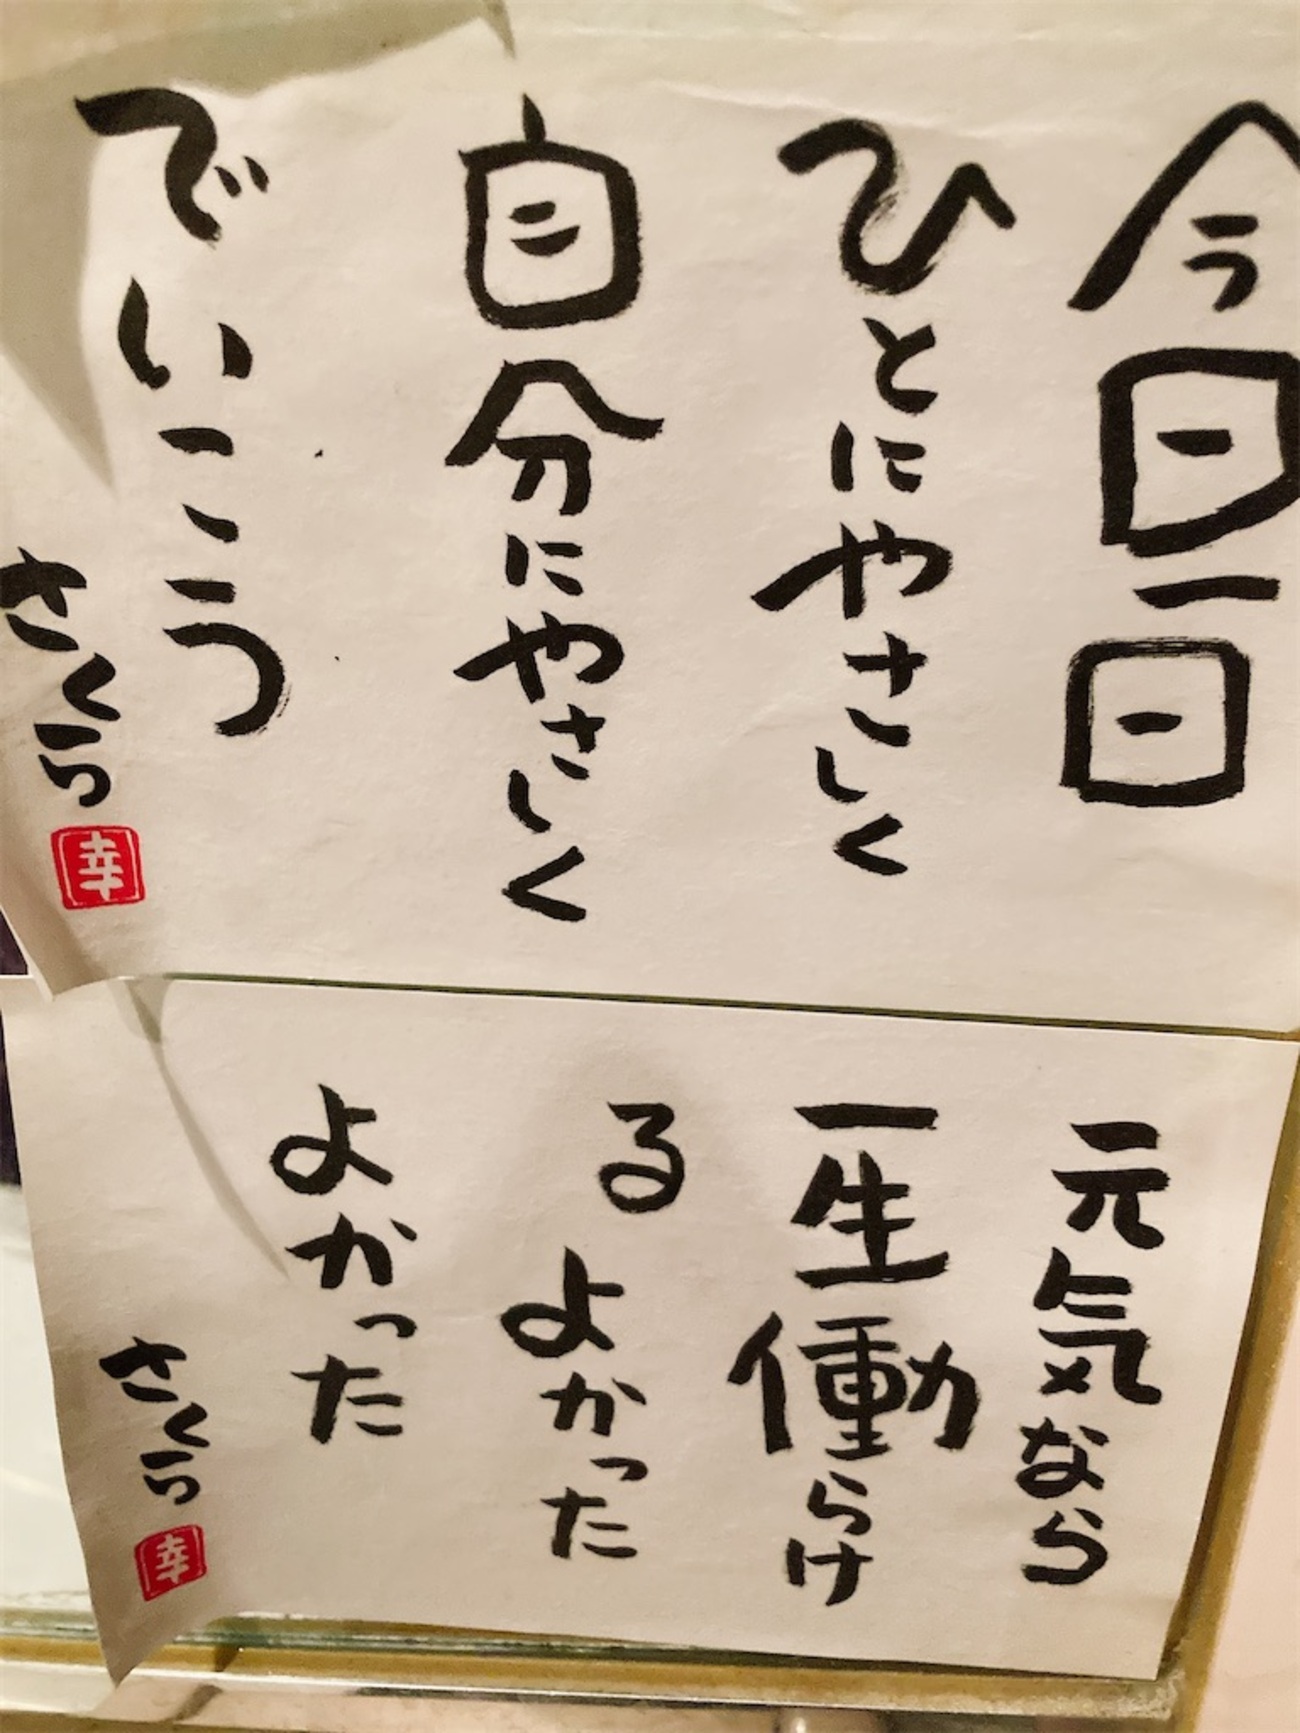 今日一日
ひとにやさしく
自分にやさしく
でいこう
さくら
幸
元気なら
一生働らけ
る よかった
よかった
さくら
幸